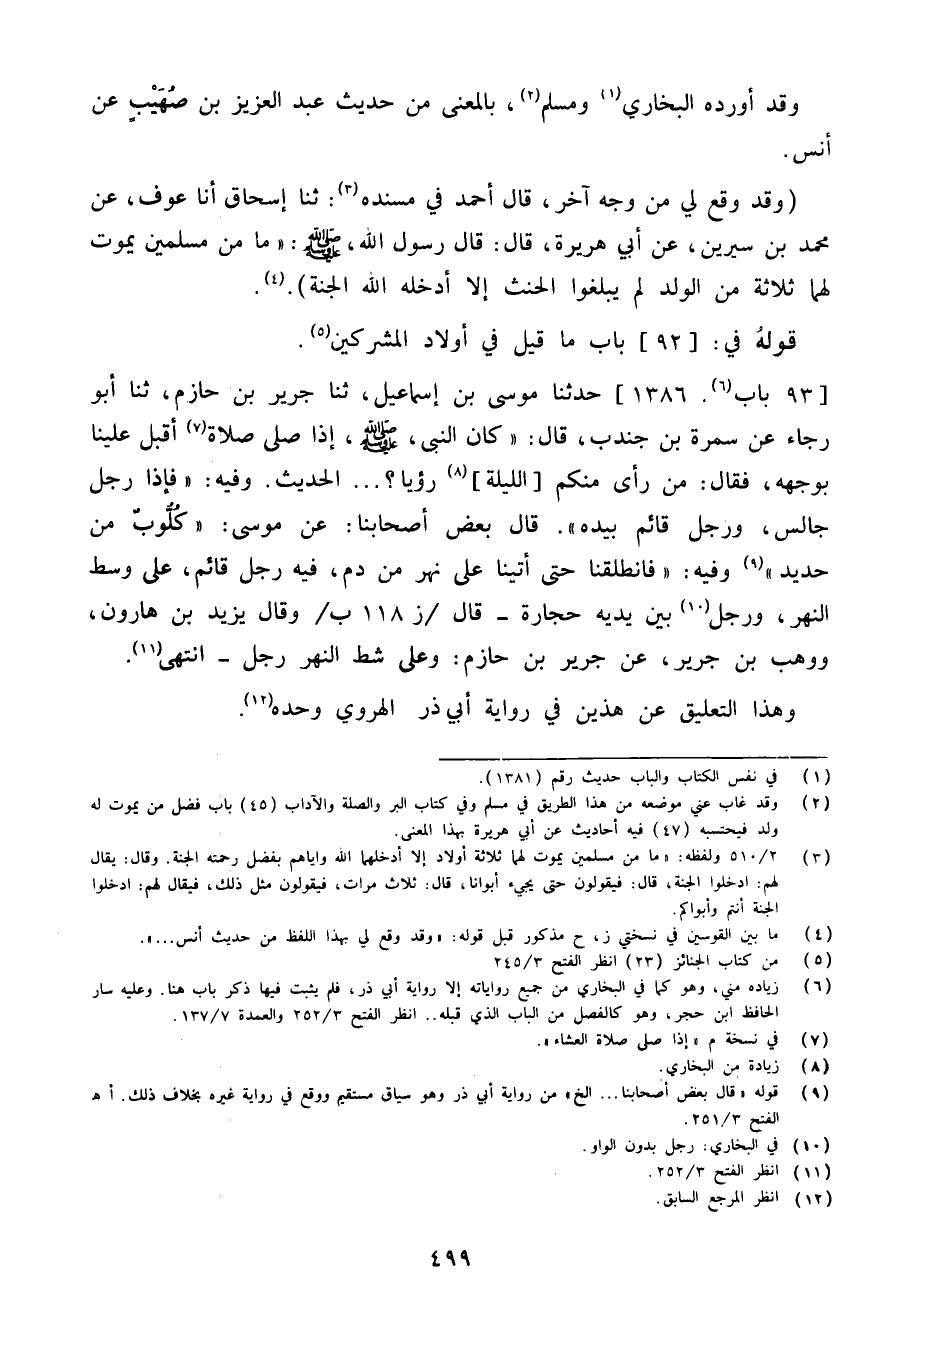 وقد أورده البخاري(١) ومسلم(٢)، بالمعنى من حديث عبد العزيز بن صُهَيْبٍ عن
أنس.
(وقد وقع لي من وجه آخر، قال أحمد في مسنده(٣): ثنا إسحاق أنا عوف، عن
محمد بن سيرين، عن أبي هريرة، قال: قال رسول الله، ﷺ: « ما من مسلمين يموت
لهما ثلاثة من الولد لم يبلغوا الحنث إلا أدخله الله الجنة).(٤).
قولهُ في: [ ٩٢ ] باب ما قيل في أولاد المشركين(٥).
[ ٩٣ باب(٦). ١٣٨٦ ] حدثنا موسى بن إسماعيل، ثنا جرير بن حازم، ثنا أبو
رجاء عن سمرة بن جندب، قال: « كان النبي، ﷺ، إذا صلى صلاة(٧) أقبل علينا
بوجهه، فقال: من رأى منكم [ الليلة ](٨) رؤيا؟... الحديث. وفيه: « فإذا رجل
جالس، ورجل قائم بيده». قال بعض أصحابنا: عن موسى: « كُلُّوبٌ من
حديد »(٩) وفيه: « فانطلقنا حتى أتينا على نهر من دم، فيه رجل قائم، على وسط
النهر، ورجل(١٠) بين يديه حجارة - قال /ز ١١٨ ب/ وقال يزيد بن هارون،
ووهب بن جرير، عن جرير بن حازم: وعلى شط النهر رجل - انتهى(١١).
وهذا التعليق عن هذين في رواية أبي ذر الهروي وحده(١٢).
(١) في نفس الكتاب والباب حديث رقم (١٣٨١).
(٢) وقد غاب عني موضعه من هذا الطريق في مسلم وفي كتاب البر والصلة والآداب (٤٥) باب فضل من يموت له
ولد فيحتسبه (٤٧) فيه أحاديث عن أبي هريرة بهذا المعنى.
(٣) ٥١٠/٢ ولفظه: « ما من مسلمين يموت لهما ثلاثة أولاد إلا أدخلهما الله واياهم بفضل رحمته الجنة. وقال: يقال
لهم: ادخلوا الجنة، قال: فيقولون حتى يجيء أبوانا، قال: ثلاث مرات، فيقولون مثل ذلك، فيقال لهم: ادخلوا
الجنة أنتم وأبواكم.
(٤) ما بين القوسين في نسختي ز، ح مذكور قبل قوله: « وقد وقع لي بهذا اللفظ من حديث أنس...».
(٥) من كتاب الجنائز (٢٣) انظر الفتح ٢٤٥/٣
(٦) زياده مني، وهو كما في البخاري من جميع رواياته إلا رواية أبي ذر، فلم يثبت فيها ذكر باب هنا. وعليه سار
الحافظ ابن حجر، وهو كالفصل من الباب الذي قبله.. انظر الفتح ٢٥٢/٣ والعمدة ١٣٧/٧.
(٧) في نسخة م « إذا صلى صلاة العشاء ».
(٨) زيادة من البخاري.
(٩) قوله « قال بعض أصحابنا... الخ» من رواية أبي ذر وهو سياق مستقيم ووقع في رواية غيره بخلاف ذلك. أ هـ
الفتح ٢٥١/٣.
(١٠) في البخاري: رجل بدون الواو.
(١١) انظر الفتح ٢٥٢/٣.
(١٢) انظر المرجع السابق.
٤٩٩